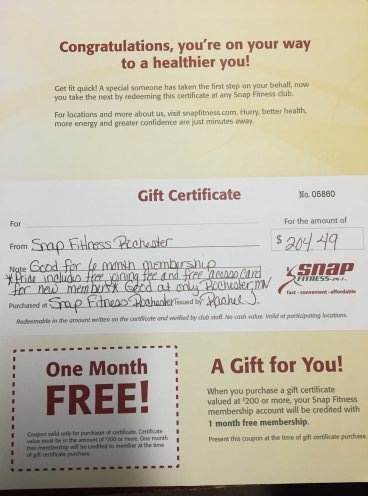 Congratulations, you're on your way
to a healthier you!
Get fit quick! A special someone has taken the first step on your behalf, now
you take the next by redeeming this certificate at any Snap Fitness club.
For locations and more about us, visit snapfitness.com. Hurry, better health,
more energy and greater confidence are just minutes away.
Gift Certificate
No. 05860
For
For the amount of
From Snap Fitness Rochester
$ 204.49
Note Good for 6 month membership
*Price includes free joining fee and free access card
for new members* Good at only Rochester, MN
SNAP
FITNESS 24-7
fast · convenient · affordable
Purchased at Snap Fitness Rochester Issued by Rachel J.
Redeemable in the amount written on the certificate and verified by club staff. No cash value. Valid at participating locations.
One Month
FREE!
Coupon valid only for purchaser of certificate. Certificate
value must be in the amount of $200 or more. One month
free membership will be credited to member at the time
of gift certificate purchase.
A Gift for You!
When you purchase a gift certificate
valued at $200 or more, your Snap Fitness
membership account will be credited with
1 month free membership.
Present this coupon at the time of gift certificate purchase.